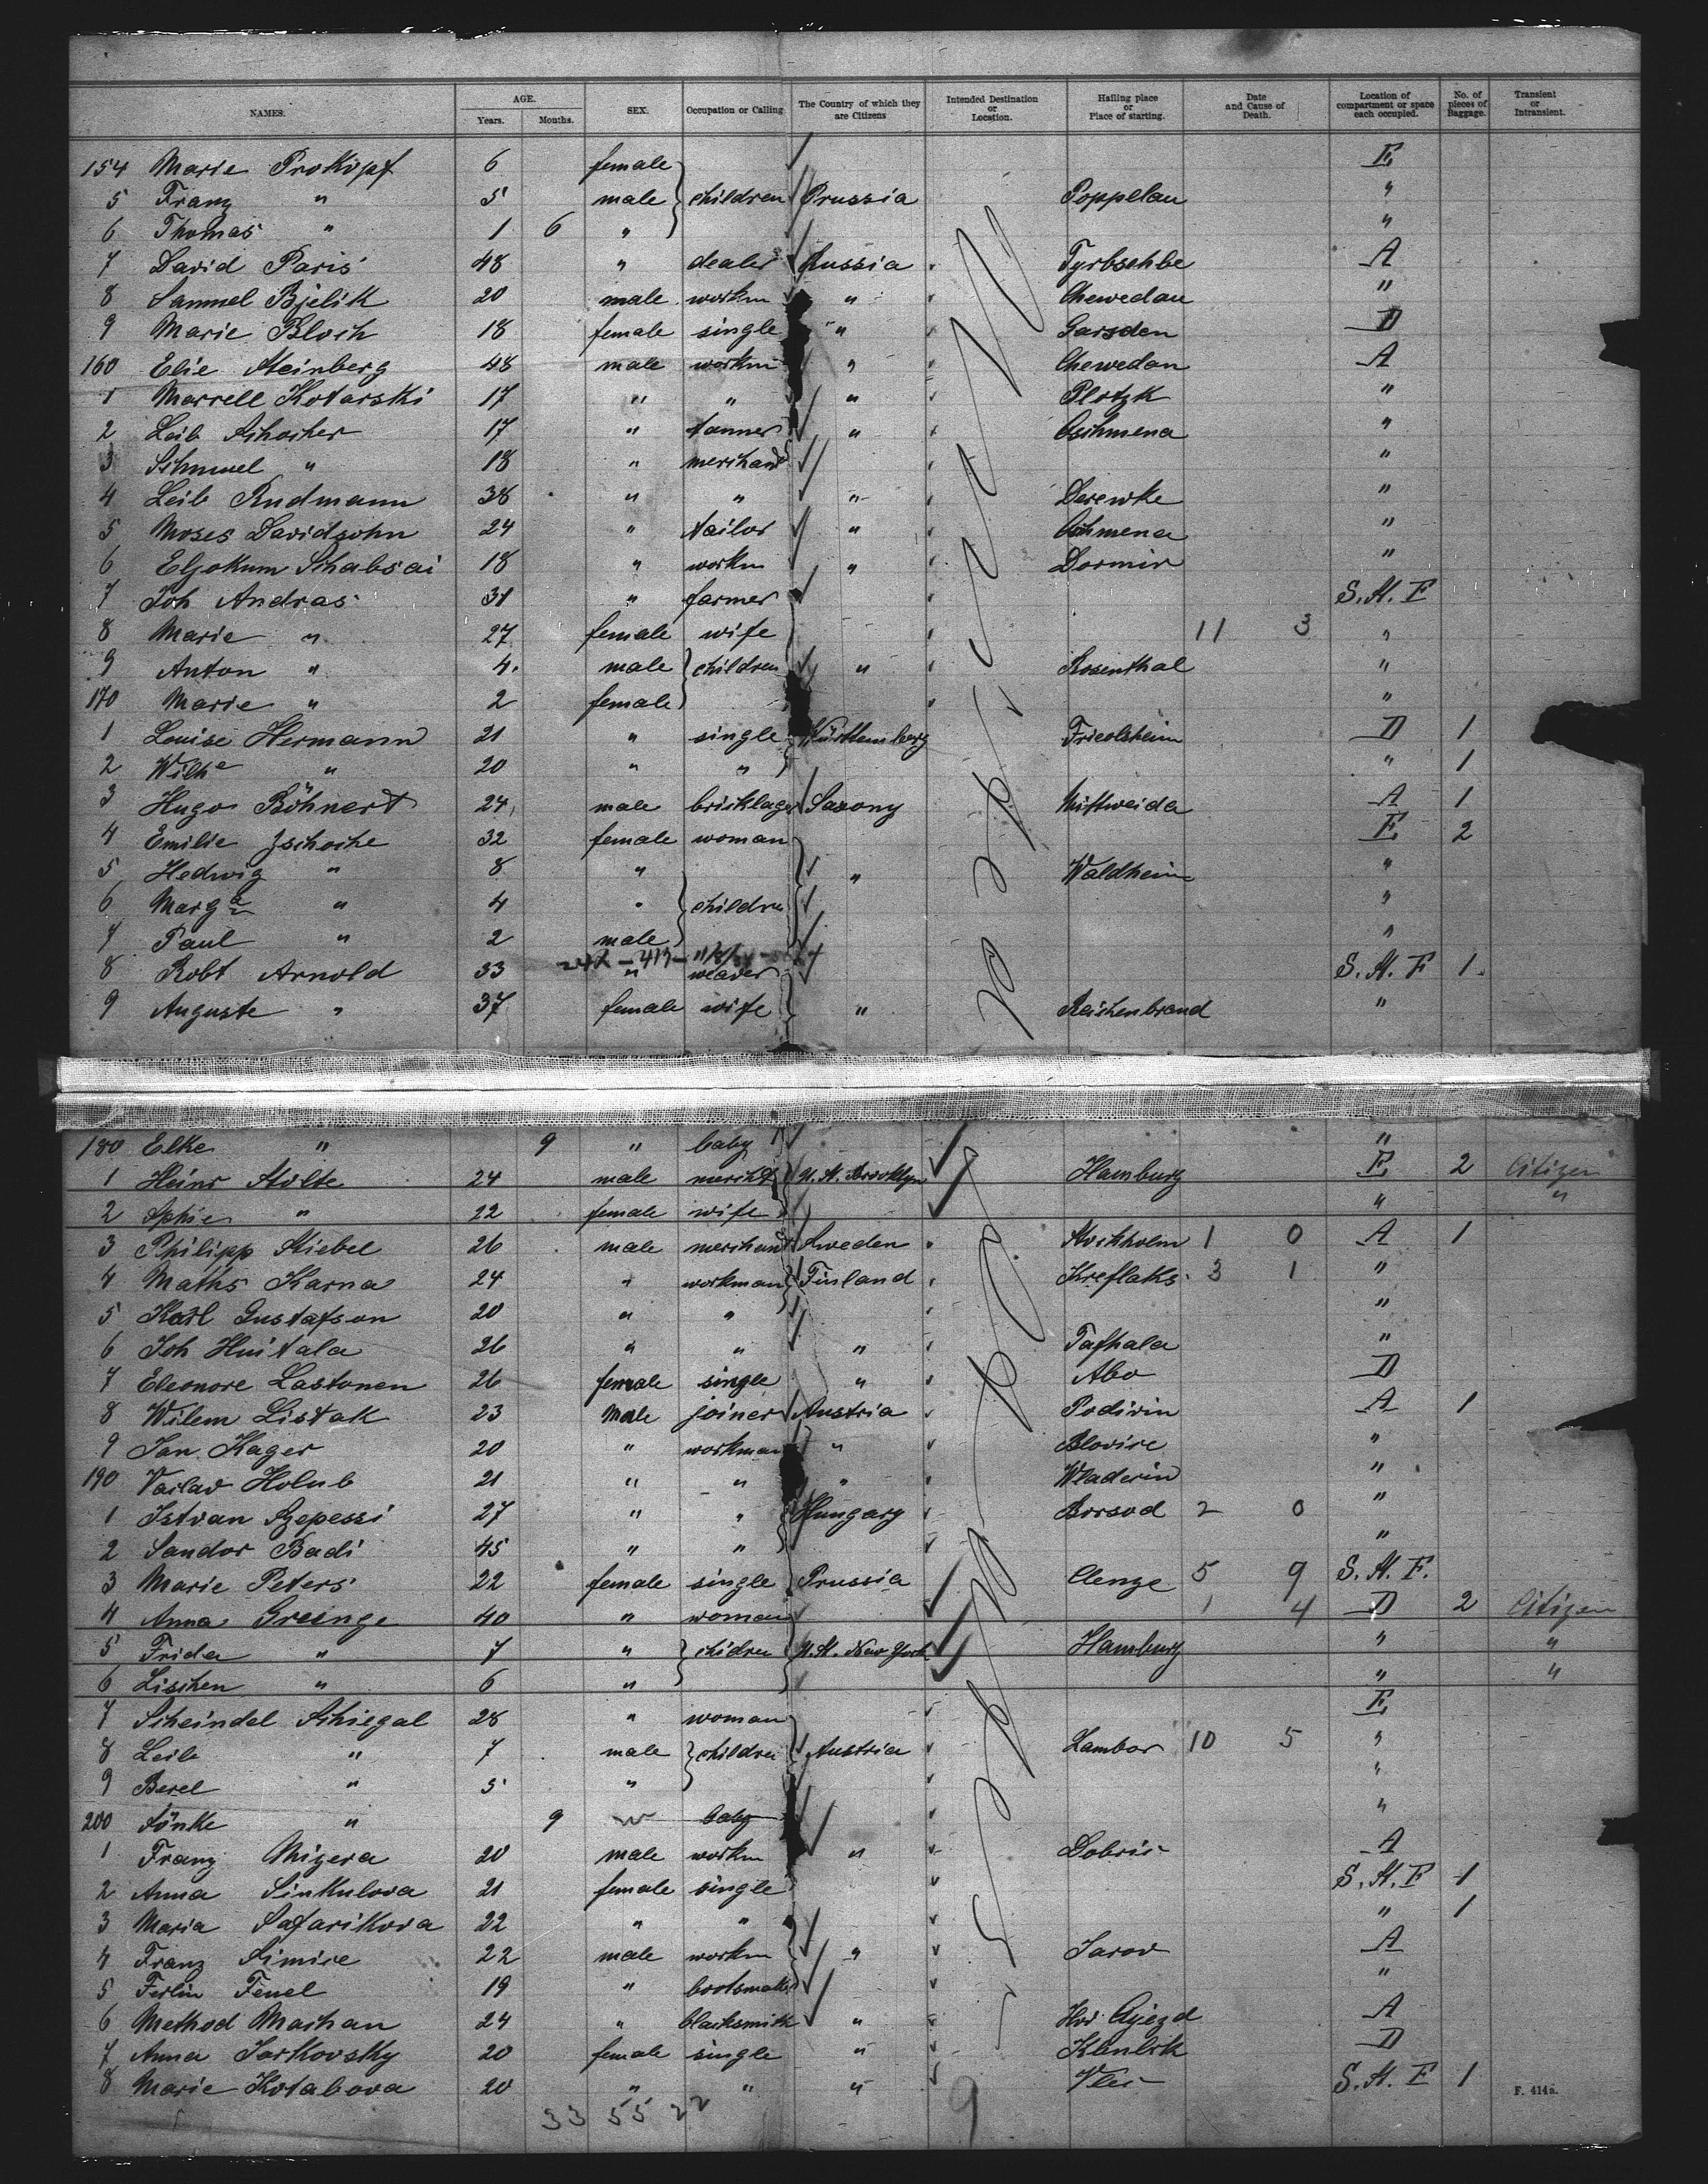 NAMES. AGE. Years. Months. SEX. Occupation or Calling The Country of which they are Citizens Intended Destination or Location. Hailing place or Place of starting. Date and Cause of Death. Location of compartment or space each occupied. No. of pieces of Baggage. Transient or Intransient.
154 Marie Prokopf 6 female E
5 Franz " 5 male children Prussia Poppelau "
6 Thomas " 1 6 " "
7 David Paris 48 " dealer Russia A
8 Samuel Bjelik 20 male workm " Chewedan "
9 Marie Bloch 18 female single " Garsden D
160 Elie Steinberg 48 male workm " Chewedan A
1 Marrell Kotarski 17 " " " Plotzk "
2 Leib Schocher 17 " tanner " Oschmena "
3 Schmuel " 18 " merchand "
4 Leib Rudmann 38 " " " Derewke "
5 Moses Davidsohn 24 " tailor " Oschmena "
6 Eljokum Schabsai 18 " workm " Dormin "
7 Joh Andras 31 " farmer S.H.E
8 Marie " 27 female wife 11 3 "
9 Anton " 4 male children " Rosenthal "
170 Marie " 2 female "
1 Louise Hermann 21 " single Württemberg Friolsheim D 1
2 Wilhe " 20 " " " 1
3 Hugo Böhnert 24 male bricklager Saxony Mittweida A 1
4 Emilie Zschoche 32 female woman E 2
5 Hedwig " 8 " " Waldheim "
6 Marg " 4 " children "
7 Paul " 2 male "
8 Robt Arnold 33 " weaver S.H.E 1
9 Auguste " 37 female wife " Reichenbrand "
180 Elke " 9 " baby "
1 Heinr Stolte 24 male mercht U.St. Brooklyn Hamburg E 2 Citizen
2 Sphie " 22 female wife " "
3 Philipp Stiebel 26 male merchand Sweden Stockholm 1 0 A 1
4 Maths Karna 24 " workman Finland Kreflaks 3 1 "
5 Karl Gustafson 20 " " "
6 Joh Huitala 26 " " " Tafhala "
7 Eleonore Lastonen 26 female single " Abo D
8 Wilem Listak 23 male joiner Austria Podivin A 1
9 Jan Kager 20 " workman " Blovice "
190 Vaclav Holub 21 " " " Wladerin "
1 Istvan Szepessi 27 " " Hungary Borsod 2 0 "
2 Sandor Badi 45 " " "
3 Marie Peters 22 female single Prussia Clenze 5 9 S.H.E.
4 Anna Greenge 40 " woman 1 4 D 2 Citizen
5 Frida " 7 " chidren U.St. New York Hamburg " "
6 Lischen " 6 " " "
7 Scheindel Schiegal 28 " woman E
8 Leib " 7 male children Austria Zambor 10 5 "
9 Berel " 5 " "
200 " 9 baby "
1 Franz Mizera 20 male workm " Dobris A
2 Anna Sinkulova 21 female single S.H.E 1
3 Maria Safarikova 22 " " " 1
4 Franz Simice 22 male workm " Jarov A
5 Ferlin Fenel 19 " bootsmaker "
6 Method Machan 24 " blacksmith " A
7 Anna Jarkovsky 20 female single " D
8 Marie Kotabova 20 " " " S.H.E 1
F. 414a.
33 55 22 9